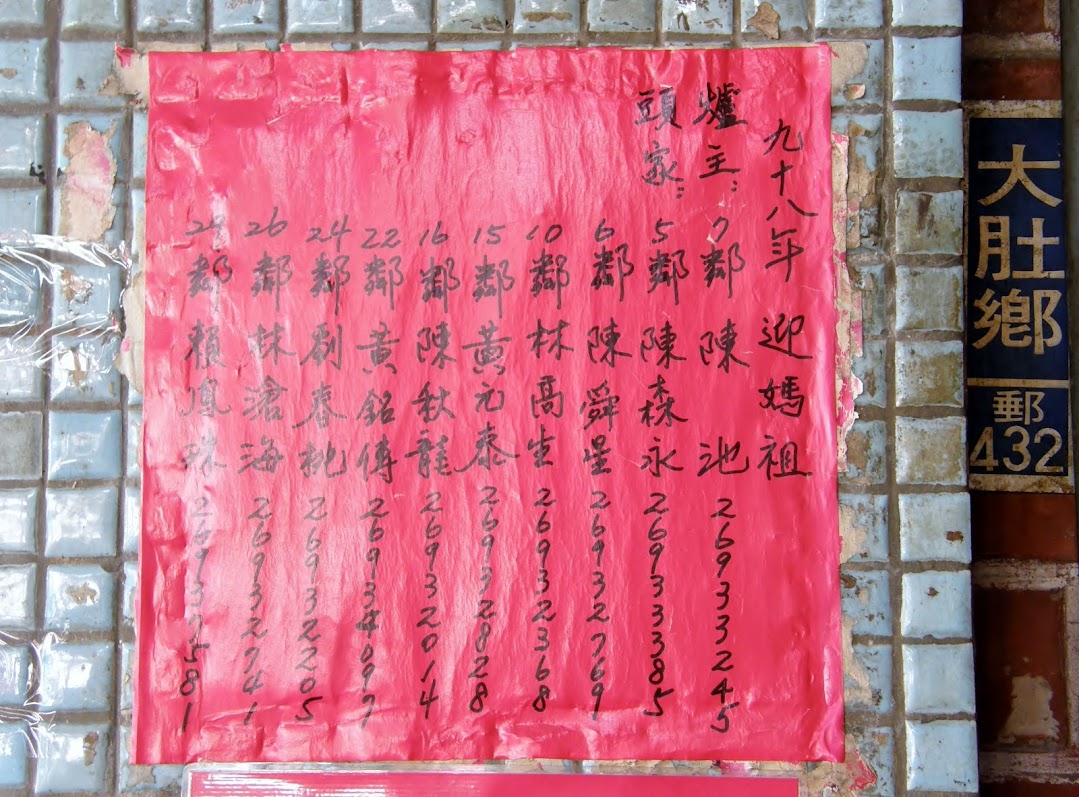 九十八年 迎媽祖
爐主: 7鄰 陳池 26933245
頭家: 5鄰 陳森永 26933385
6鄰 陳舜星 26932769
10鄰 林高生 26932368
15鄰 黃元泰 26932828
16鄰 陳秋龍 26932014
22鄰 黃銘傳 26934097
24鄰 劉春桃 26932205
26鄰 林滄海 26932741
鄰 賴鳳珠
大肚鄉
郵
432